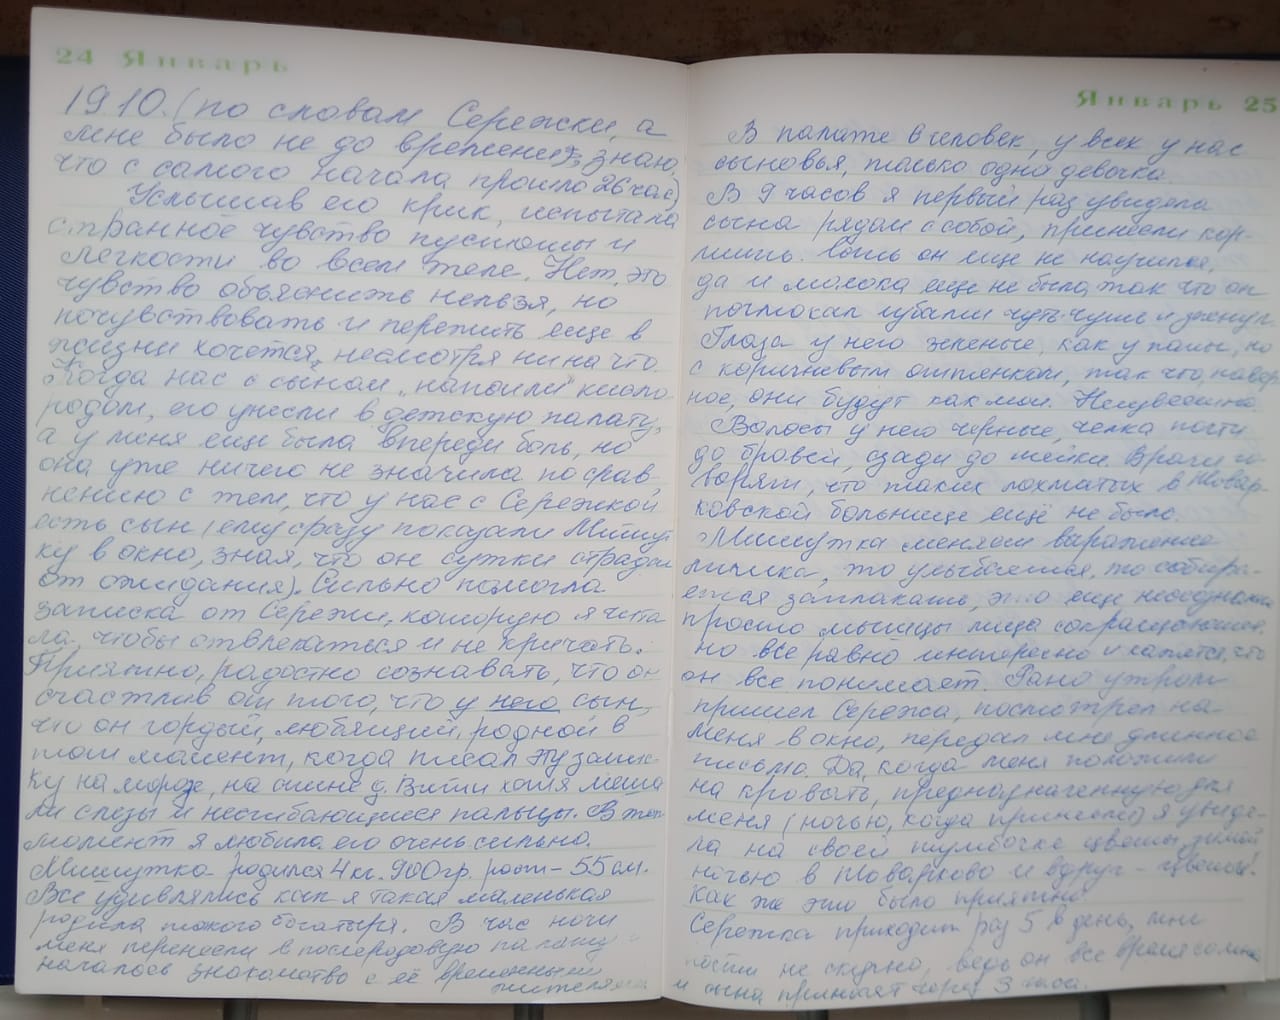 24 Январь
19 10. (по словам Сережки, а
мне было не до времени, знаю,
что с самого начала прошло 26 час)
Услышав его крик, испытала
странное чувство пустоты и
легкости во всем теле. Нет, это
чувство объяснить нельзя, но
почувствовать и пережить еще в
жизни хочется, несмотря ни на что.
Когда нас с сыном "напоили" кисло
родом, его унесли в детскую палату,
а у меня еще была впереди боль, но
она уже ничего не значила по срав
нению с тем, что у нас с Сережкой
есть сын (ему сразу показали Мишут
ку в окно, зная, что он сутки страдал
от ожидания). Сильно помогла
записка от Сережи, которую я чита
ла, чтобы отвлекаться и не кричать.
Приятно, радостно сознавать, что он
счастлив от того, что у него сын,
что он гордый, любящий, родной в
тот момент, когда писал эту запис-
ку на морозе, на спине д. Вити хотя меша
ли слезы и несгибающиеся пальцы. В тот
момент я любила его очень сильно.
Мишутка родился 4 кг. 900 гр. рост - 55 см.
Все удивлялись как я такая маленькая
родила такого богатыря. В час ночи
меня перенесли в послеродовую палату
началось знакомство с её временными
жителями
Январь 25
В палате 6 человек, у всех у нас
сыновья, только одна девочка.
В 9 часов я первый раз увидела
сына рядом с собой, принесли кор-
мить. Есть он еще не научился,
да и молока еще не было, так что он
почмокал губами чуть-чуть и уснул.
Глаза у него зеленые, как у папы, но
с коричневым оттенком, так что, навер
ное, они будут как мои. Неизвестно.
Волосы у него черные, челка почти
до бровей, сзади до шейки. Врачи го-
ворят, что таких лохматых в Товар-
ковской больнице ещё не было.
Мишутка меняет выражение
личика, то улыбается, то собира-
ется заплакать, это еще неосознанно
просто мышцы лица сокращаются,
но все равно интересно и кажется, что
он все понимает. Рано утром
пришел Сережа, посмотрел на
меня в окно, передал мне длинное
письмо. Да, когда меня положили
на кровать, предназначенную для
меня (ночью, когда принесли) я увиде-
ла на своей тумбочке цветы, зимой
ночью в Товарково и вдруг - цветы!
Как же это было приятно.
Сережка приходит раз 5 в день, мне
почти не скучно, ведь он все время со мной
и сына приносят через 3 часа.